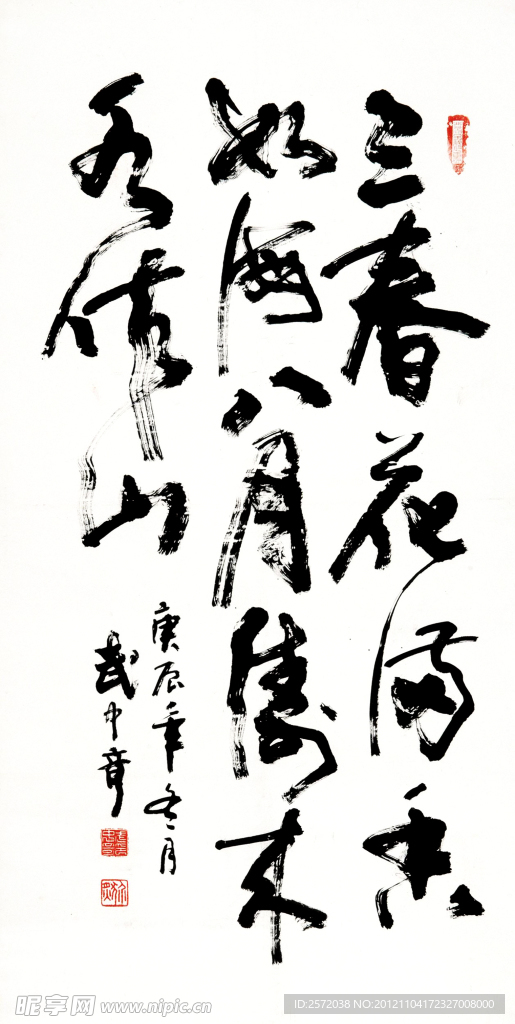 三春花满香
如海八月涛来
水作山
庚辰年冬月
武中奇
昵享网 www.nipic.cn
ID:2572038 NO:20121104172327008000